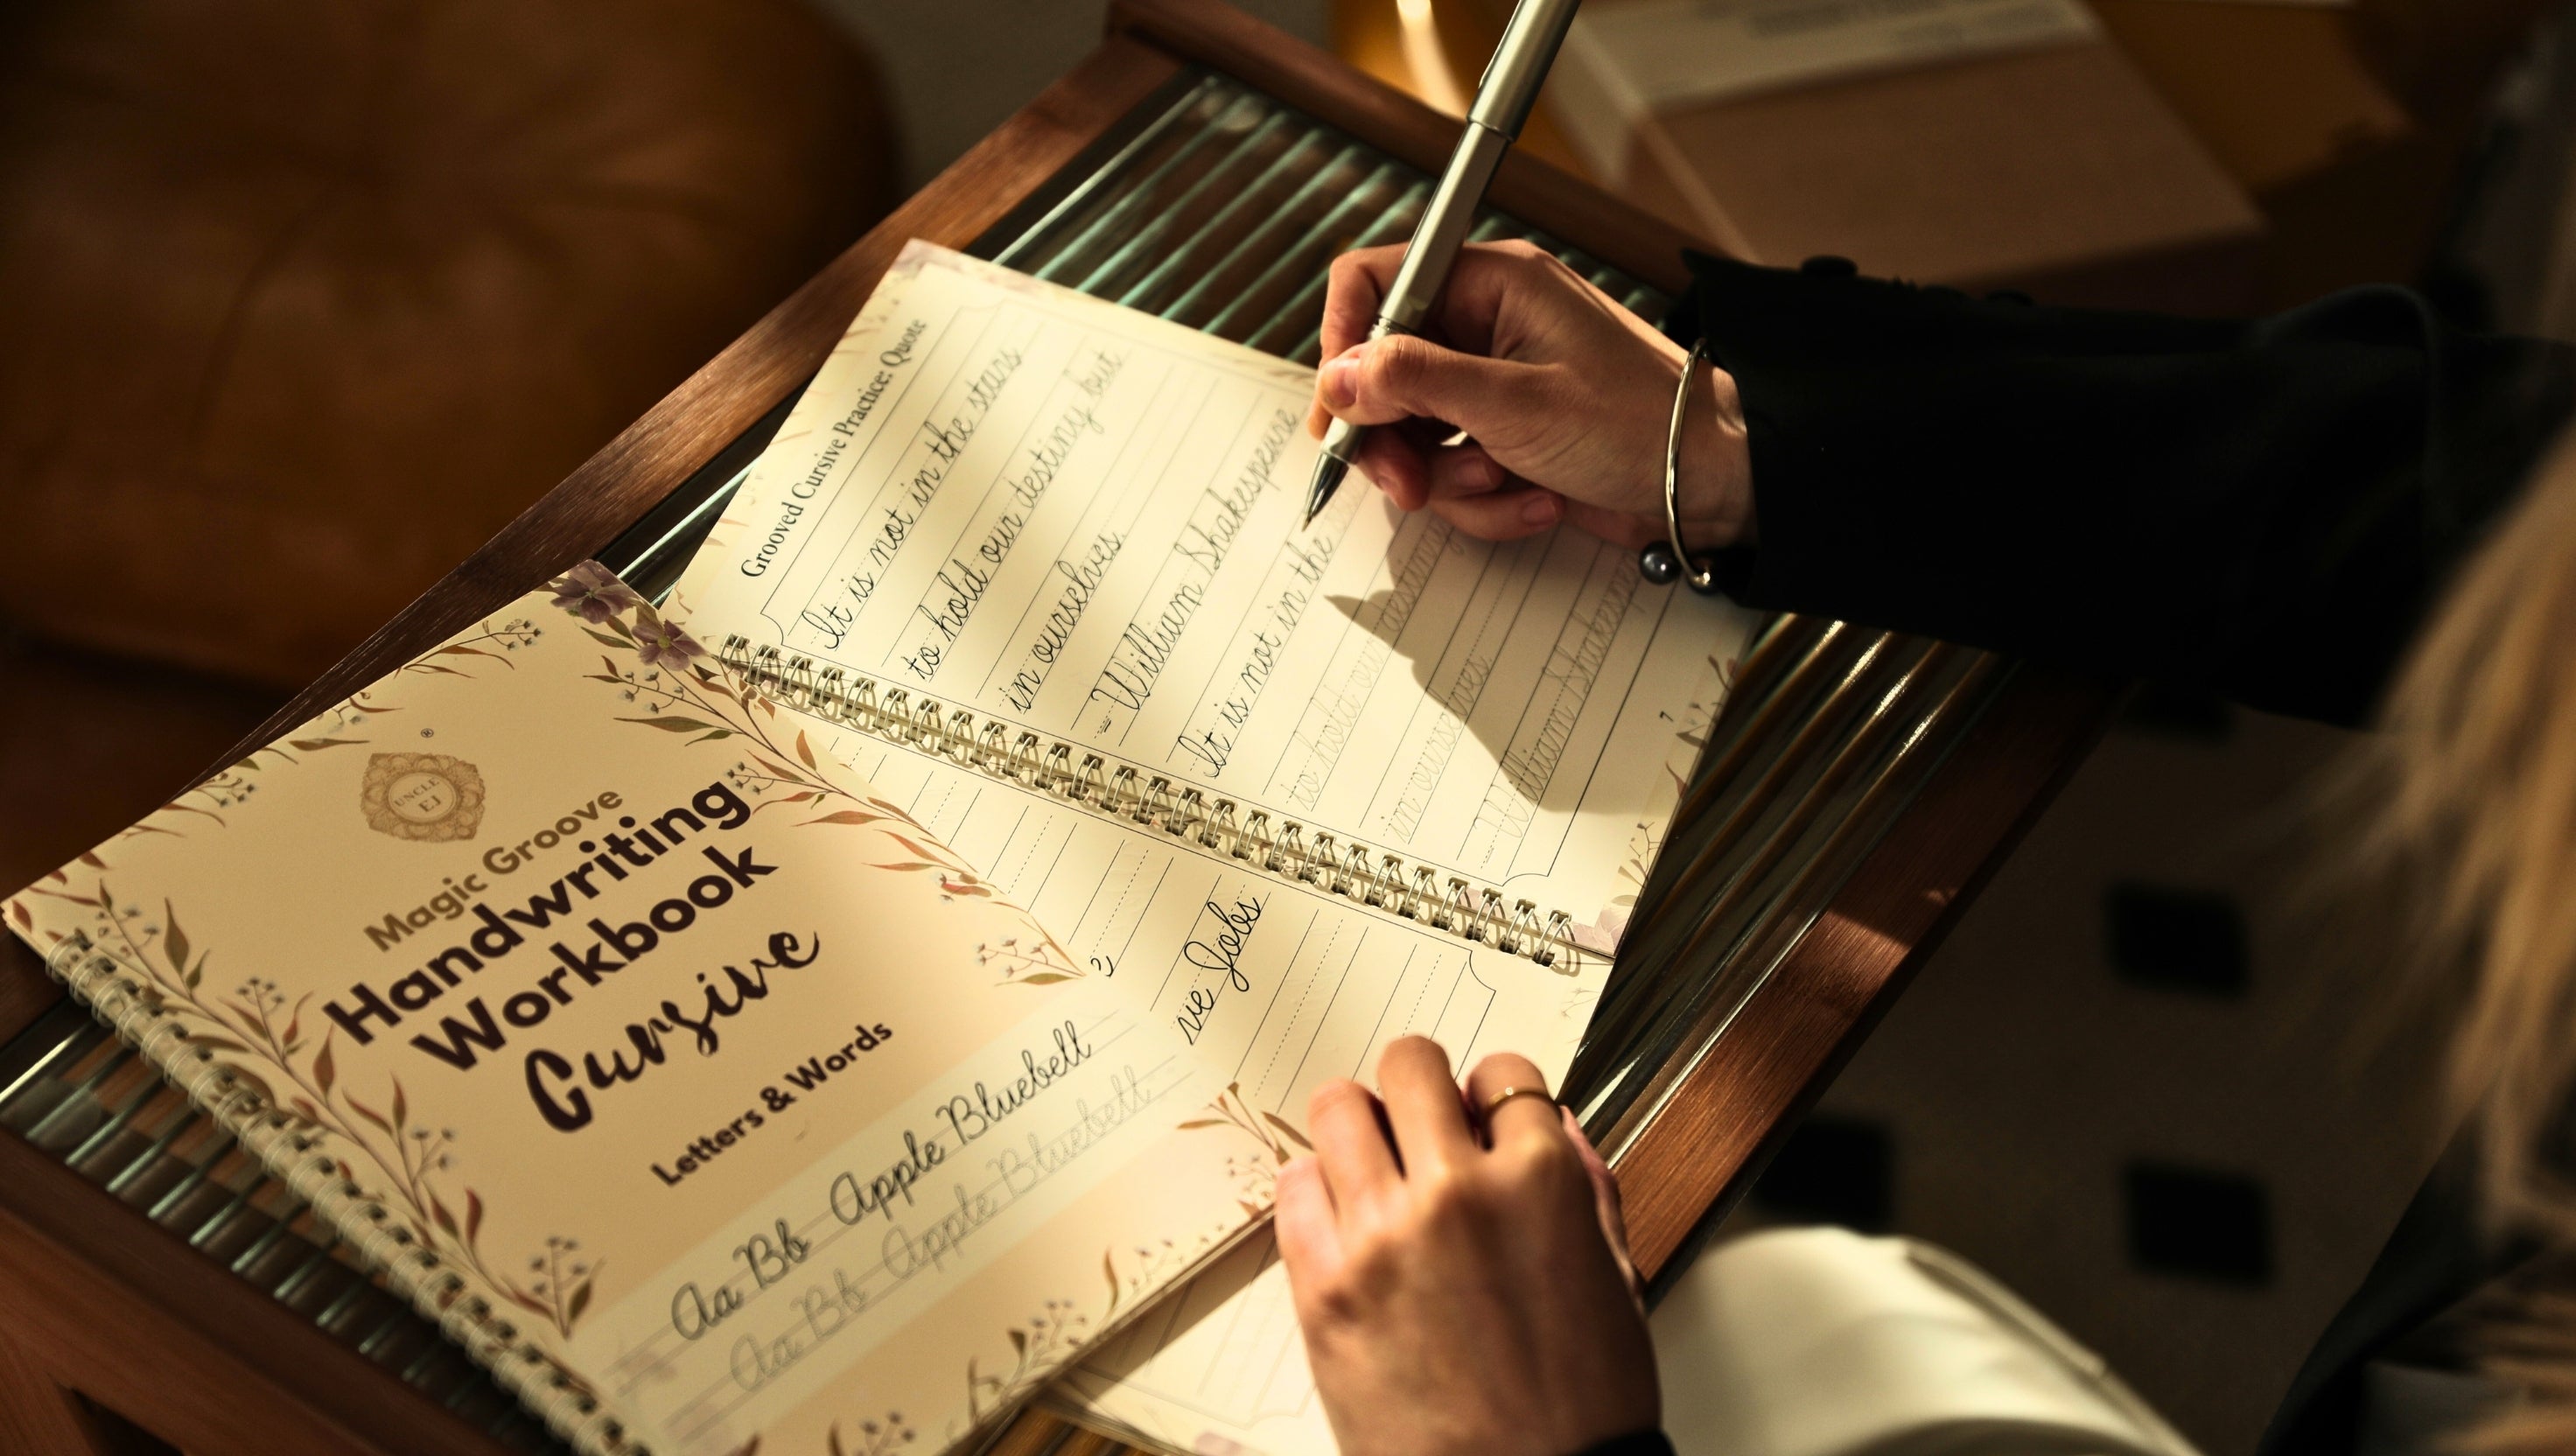 Grooved Cursive Practice: Quote
It is not in the stars
to hold our destiny but
in ourselves.
- William Shakespeare
It is not in the
to hold our destiny
in ourselves.
William Shakespeare
7
ve Jobs
®
UNCLE
EJ
Magic Groove
Handwriting
Workbook
Cursive
Letters & Words
Aa Bb Apple Bluebell
Aa Bb Apple Bluebell